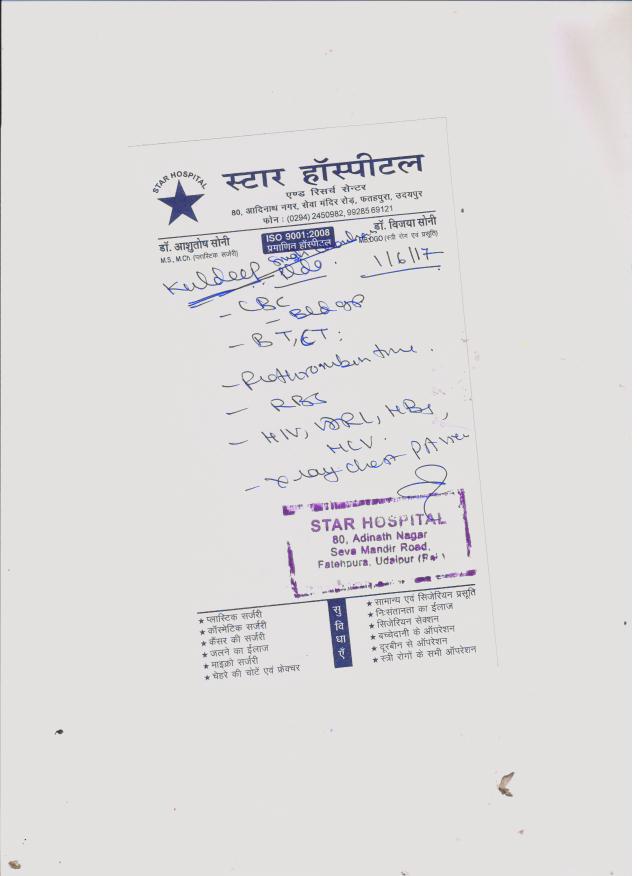 STAR HOSPITAL
स्टार हॉस्पीटल
एण्ड रिसर्च सेन्टर
80, आदिनाथ नगर, सेवा मंदिर रोड़, फतहपुरा, उदयपुर
फोन : (0294) 2450982, 9928569121
डॉ. आशुतोष सोनी
M.S., M.Ch. (प्लास्टिक सर्जरी)
ISO 9001:2008
प्रमाणित हॉस्पीटल
डॉ. विजया सोनी
MS.OGO (स्त्री रोग एवं प्रसूति)
Kuldeep Singh
1/6/17
- CBC
- Bld gp
- BT, CT :
- Prothrombin time .
- RBS
- HIV, VDRL, HBs,
HCV.
- x-ray chest PA view
STAR HOSPITAL
80, Adinath Nagar
Seva Mandir Road,
Fatehpura, Udaipur (Raj.)
★ प्लास्टिक सर्जरी
★ कॉस्मेटिक सर्जरी
★ कैंसर की सर्जरी
★ जलने का ईलाज
★ माइक्रो सर्जरी
★ चेहरे की चोटें एवं फ्रेक्चर
सुविधाएँ
★ सामान्य एवं सिजेरियन प्रसूति
★ निःसंतानता का ईलाज
★ सिजेरियन सेक्शन
★ बच्चेदानी के ऑपरेशन
★ दूरबीन से ऑपरेशन
★ स्त्री रोगों के सभी ऑपरेशन